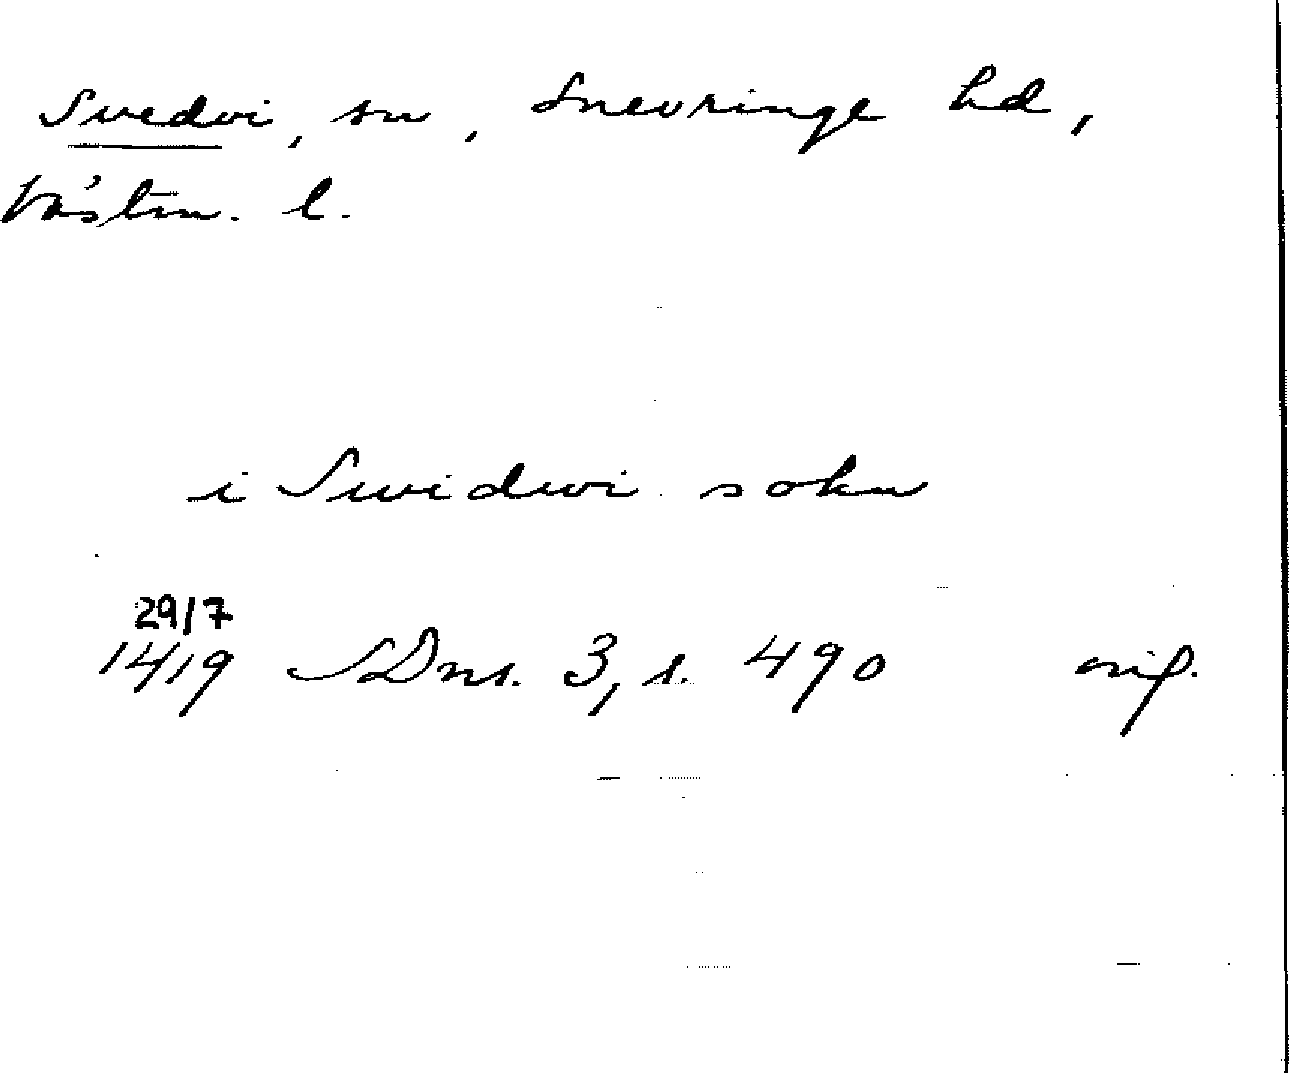 Svedvi, sn, Snevringe hd,
Västm. l.
i Swidwi sokn
29/7
1419 SDns. 3, s. 490 orig.